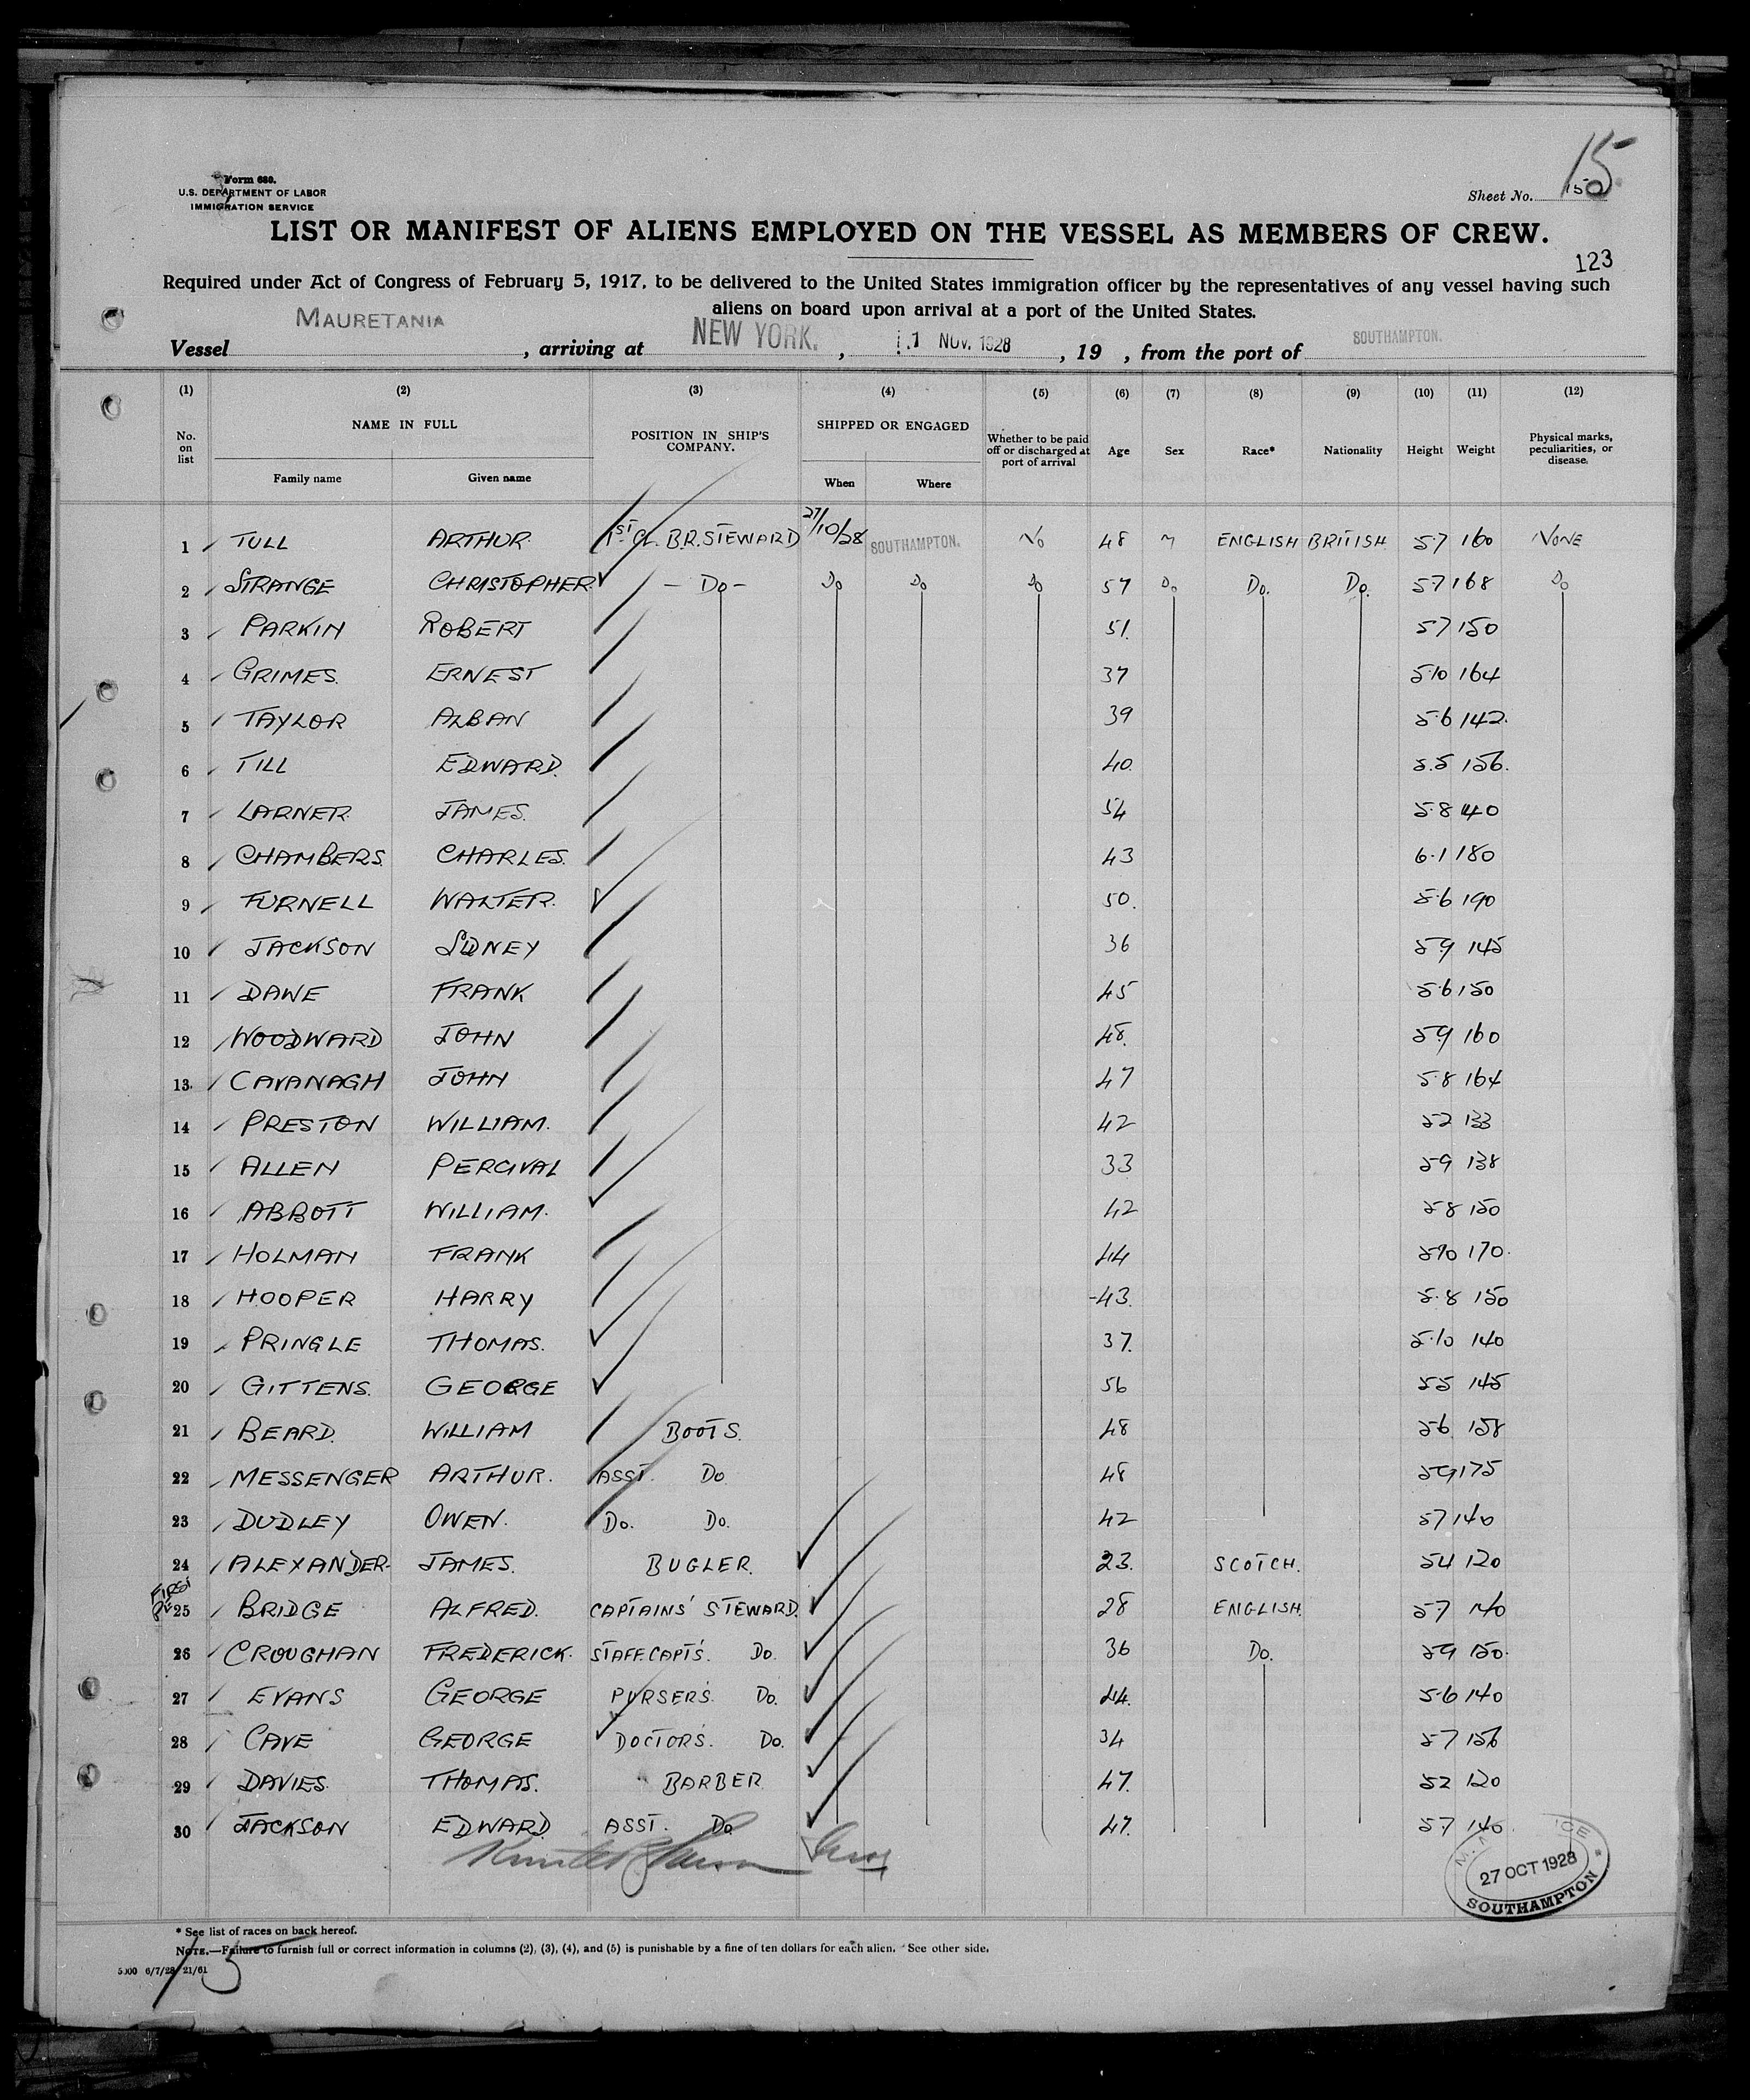 Form 680.
U.S. DEPARTMENT OF LABOR
IMMIGRATION SERVICE
Sheet No. 15
LIST OR MANIFEST OF ALIENS EMPLOYED ON THE VESSEL AS MEMBERS OF CREW.
123
Required under Act of Congress of February 5, 1917, to be delivered to the United States immigration officer by the representatives of any vessel having such
aliens on board upon arrival at a port of the United States.
Vessel MAURETANIA, arriving at NEW YORK., 1 NOV. 1928, 19 , from the port of SOUTHAMPTON.
(1) (2) (3) (4) (5) (6) (7) (8) (9) (10) (11) (12)
No. on list NAME IN FULL Family name Given name POSITION IN SHIP'S COMPANY. SHIPPED OR ENGAGED When Where Whether to be paid off or discharged at port of arrival Age Sex Race* Nationality Height Weight Physical marks, peculiarities, or disease.
1 TULL ARTHUR 1ST CL. B.R. STEWARD 27/10/28 SOUTHAMPTON. No 48 M ENGLISH BRITISH 5.7 160 NONE
2 STRANGE CHRISTOPHER - Do - Do Do Do 57 Do Do. Do. 57 168 Do
3 PARKIN ROBERT 51. 57 150
4 GRIMES. ERNEST 37 5.10 164
5 TAYLOR ALBAN 39 5.6 142.
6 TILL EDWARD. 40. 5.5 156.
7 LARNER. JAMES. 54 5.8 140
8 CHAMBERS. CHARLES. 43 6.1 180
9 FURNELL WALTER. 50. 5.6 190
10 JACKSON SIDNEY 36 5.9 145
11 DAWE FRANK 45 5.6 150
12 WOODWARD JOHN 48. 5.9 160
13. CAVANAGH JOHN 47 5.8 164
14 PRESTON WILLIAM. 42 52 133
15 ALLEN PERCIVAL 33 59 138
16 ABBOTT WILLIAM. 42 58 150
17 HOLMAN FRANK 44 510 170.
18 HOOPER HARRY 43. 5.8 150
19 PRINGLE THOMAS. 37. 5.10 140
20 GITTENS. GEORGE 56 55 145
21 BEARD. WILLIAM BOOTS. 48 56 158
22 MESSENGER ARTHUR. ASST. Do 48 59 175
23 DUDLEY OWEN. Do. Do. 42 57 140
24 ALEXANDER JAMES. BUGLER. 23. SCOTCH. 54 120
25 BRIDGE ALFRED. CAPTAINS' STEWARD. 28 ENGLISH. 57 140
26 CROUGHAN FREDERICK. STAFF.CAPT'S. Do. 36 Do. 59 150.
27 EVANS GEORGE PURSER'S. Do. 44. 5.6 140
28 CAVE GEORGE DOCTOR'S. Do. 34 57 156
29 DAVIES. THOMAS. BARBER 47. 52 120
30 JACKSON EDWARD. ASST. Do 47. 5.7 140.
27 OCT 1928
SOUTHAMPTON
* See list of races on back hereof.
NOTE.—Failure to furnish full or correct information in columns (2), (3), (4), and (5) is punishable by a fine of ten dollars for each alien. See other side.
5000 6/7/28 21/61